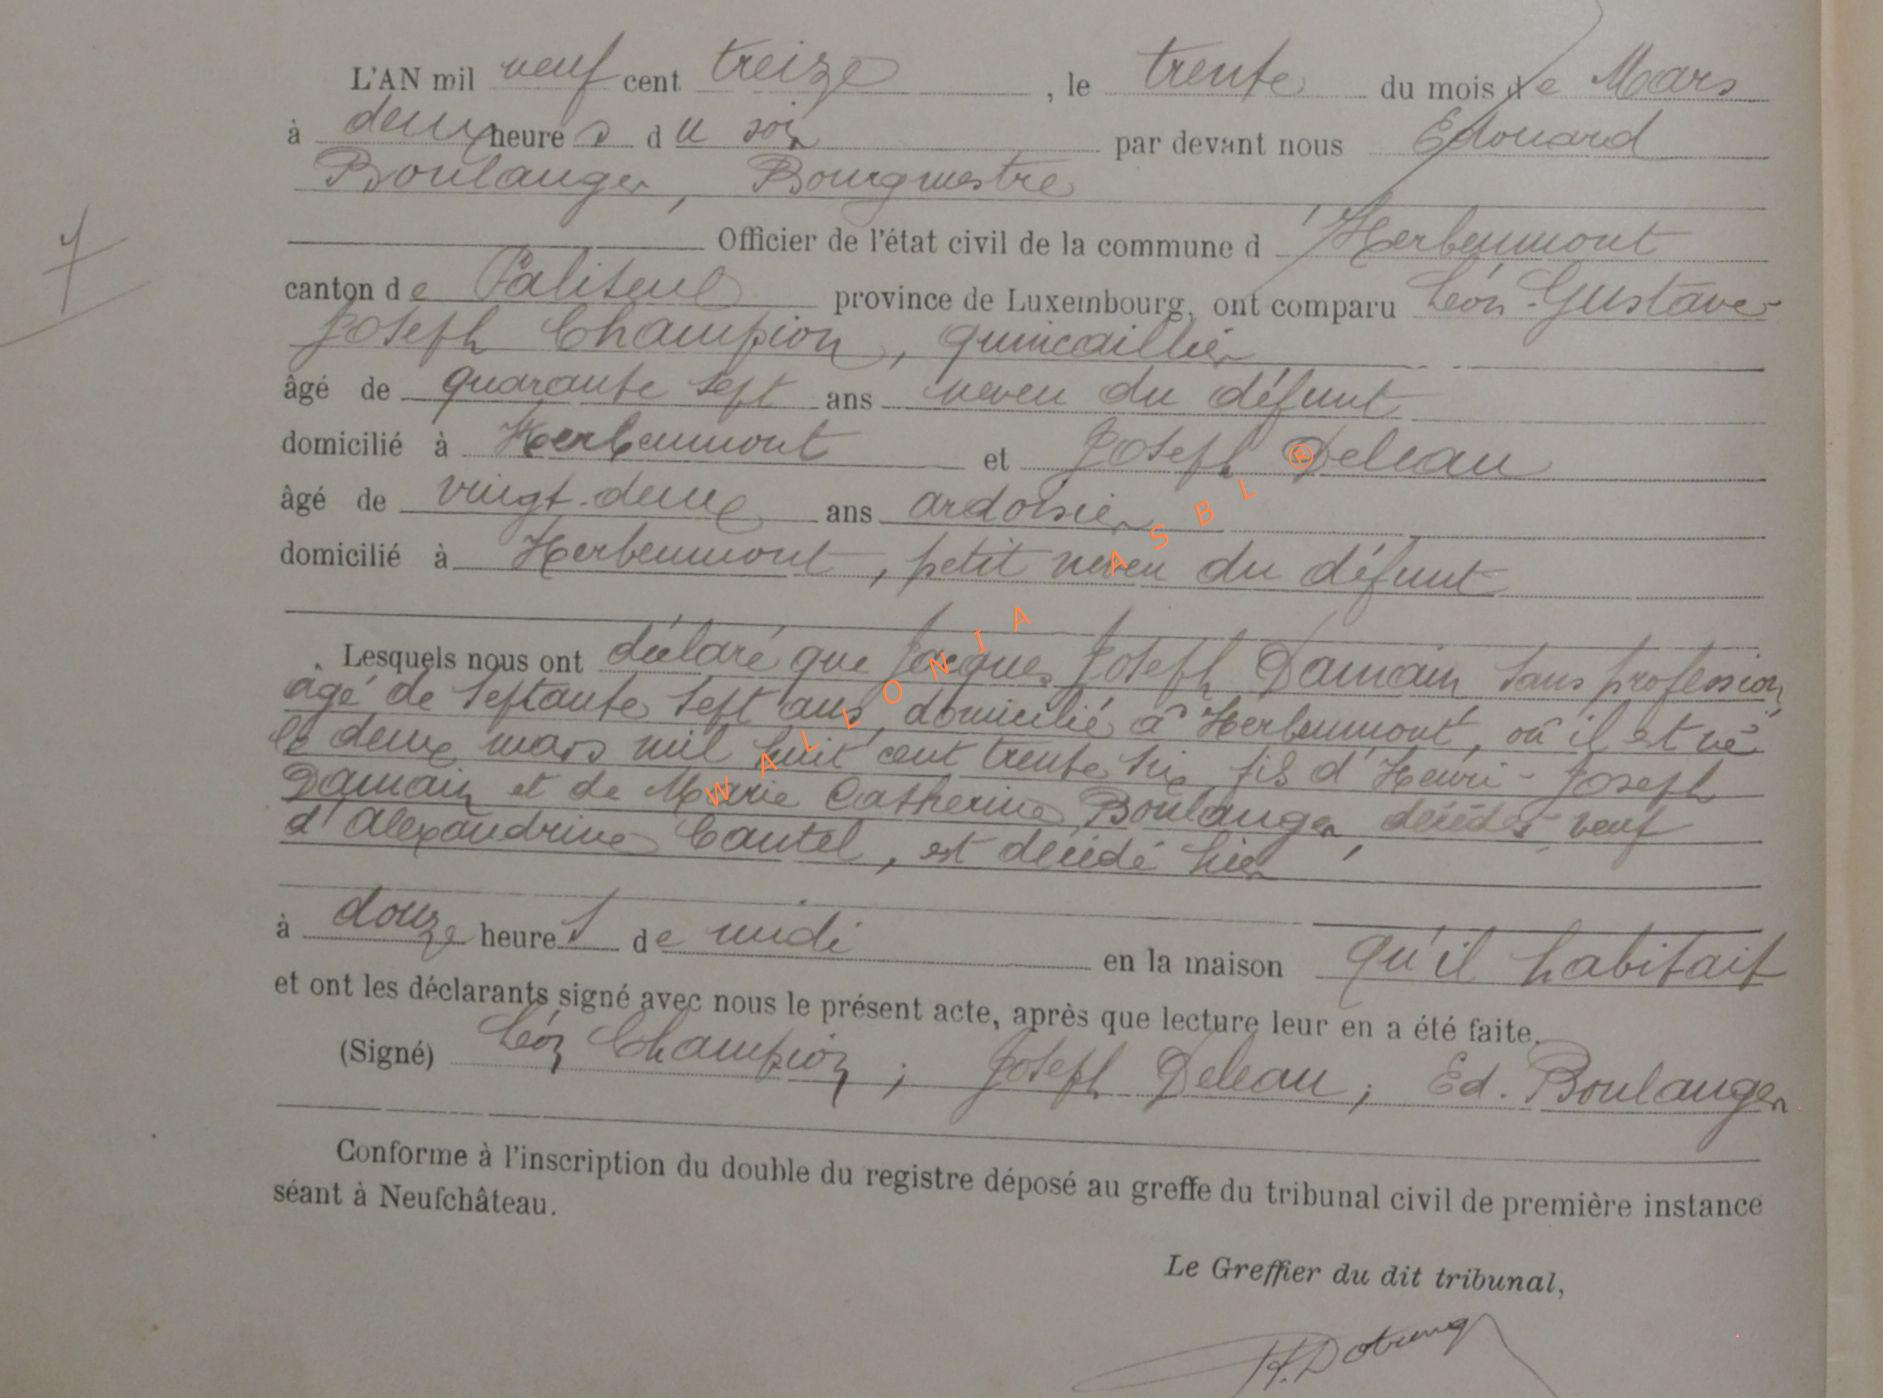 L'AN mil neuf cent treize, le trente du mois de Mars
à deux heures du soir par devant nous Edouard
Boulanger, Bourgmestre
Officier de l'état civil de la commune d'Herbeumont
canton de Paliseul province de Luxembourg, ont comparu Léon-Gustave-
Joseph Champion, quincaillier
âgé de quarante sept ans neveu du défunt
domicilié à Herbeumont et Joseph Deleau
âgé de vingt-deux ans ardoisier
domicilié à Herbeumont, petit neveu du défunt
Lesquels nous ont déclaré que Jacques Joseph Damain sans profession,
âgé de septante sept ans, domicilié à Herbeumont, où il est né
le deux mars mil huit cent trente six fils d'Henri-Joseph
Damain et de Marie Catherine Boulanger, décédés, veuf
d'Alexandrine Cantel, est décédé hier
7
à douze heures de midi en la maison qu'il habitait
et ont les déclarants signé avec nous le présent acte, après que lecture leur en a été faite.
(Signé) Léon Champion; Joseph Deleau; Ed. Boulanger
Conforme à l'inscription du double du registre déposé au greffe du tribunal civil de première instance
séant à Neufchâteau.
Le Greffier du dit tribunal,
WALLONIA ASBL ®